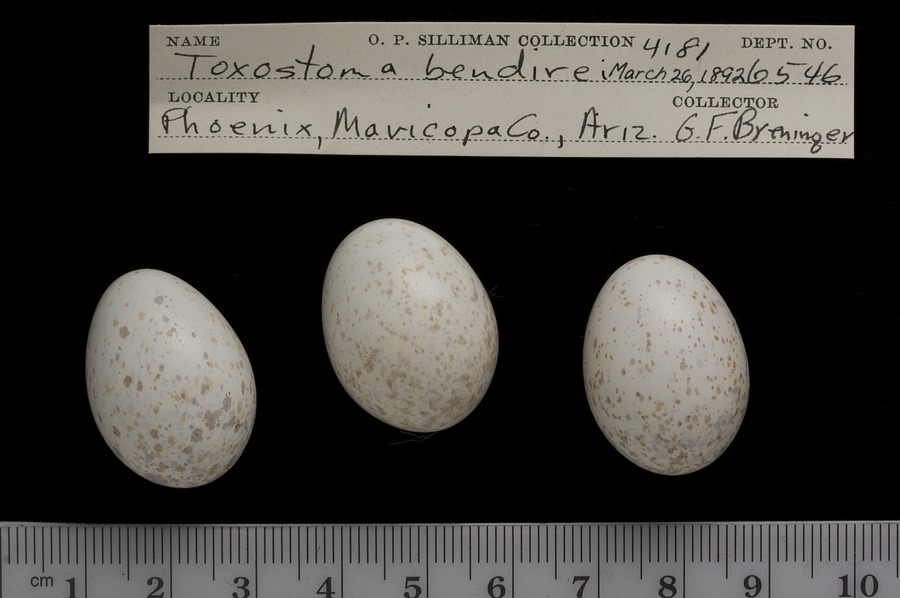 NAME O. P. SILLIMAN COLLECTION 4181 DEPT. NO.
Toxostoma bendirei March 26, 1892 6546
LOCALITY COLLECTOR
Phoenix, Maricopa Co., Ariz. G. F. Breninger
cm 1 2 3 4 5 6 7 8 9 10